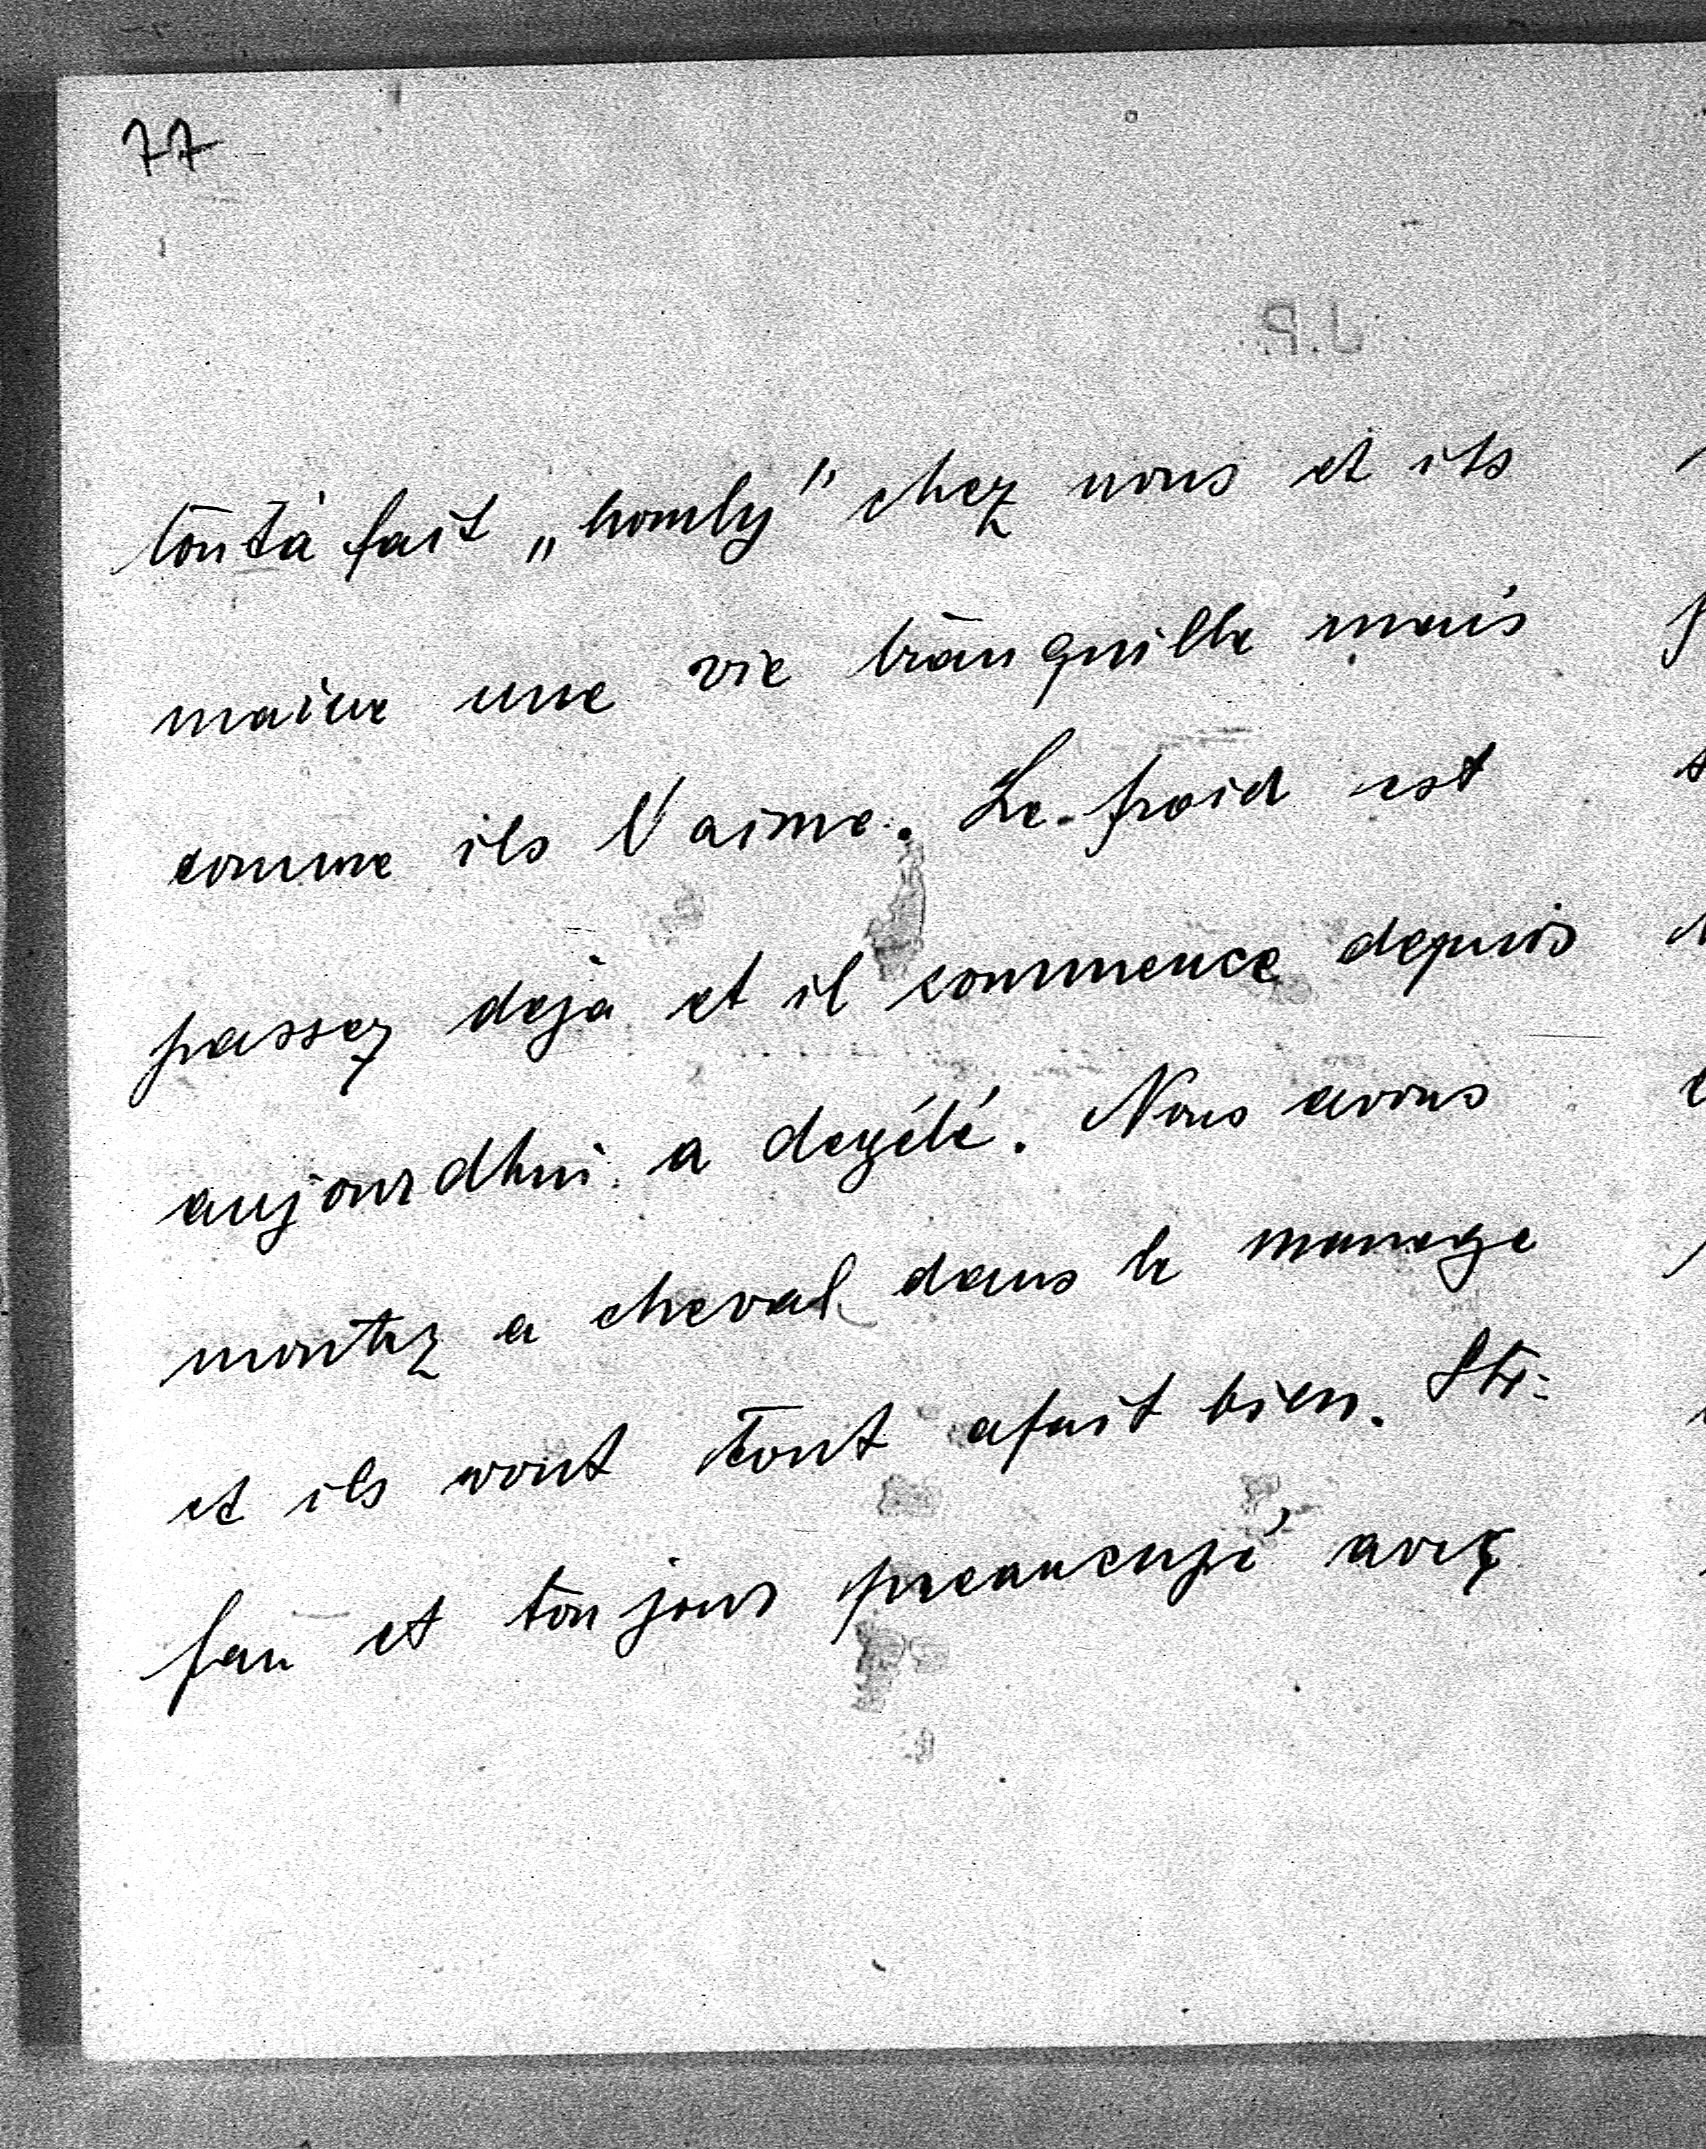 77
J.P.
toutà fait „homly" chez nous et ils
maine une vie tranquille mais
comme ils l'aime. Le froid est
passez dejà et il commence depuis
aujourdhui a degélé. Nous avons
montez a cheval dans le manege
et ils vont tout afait bien. Ste-
fan et toujours preaucupé aveç